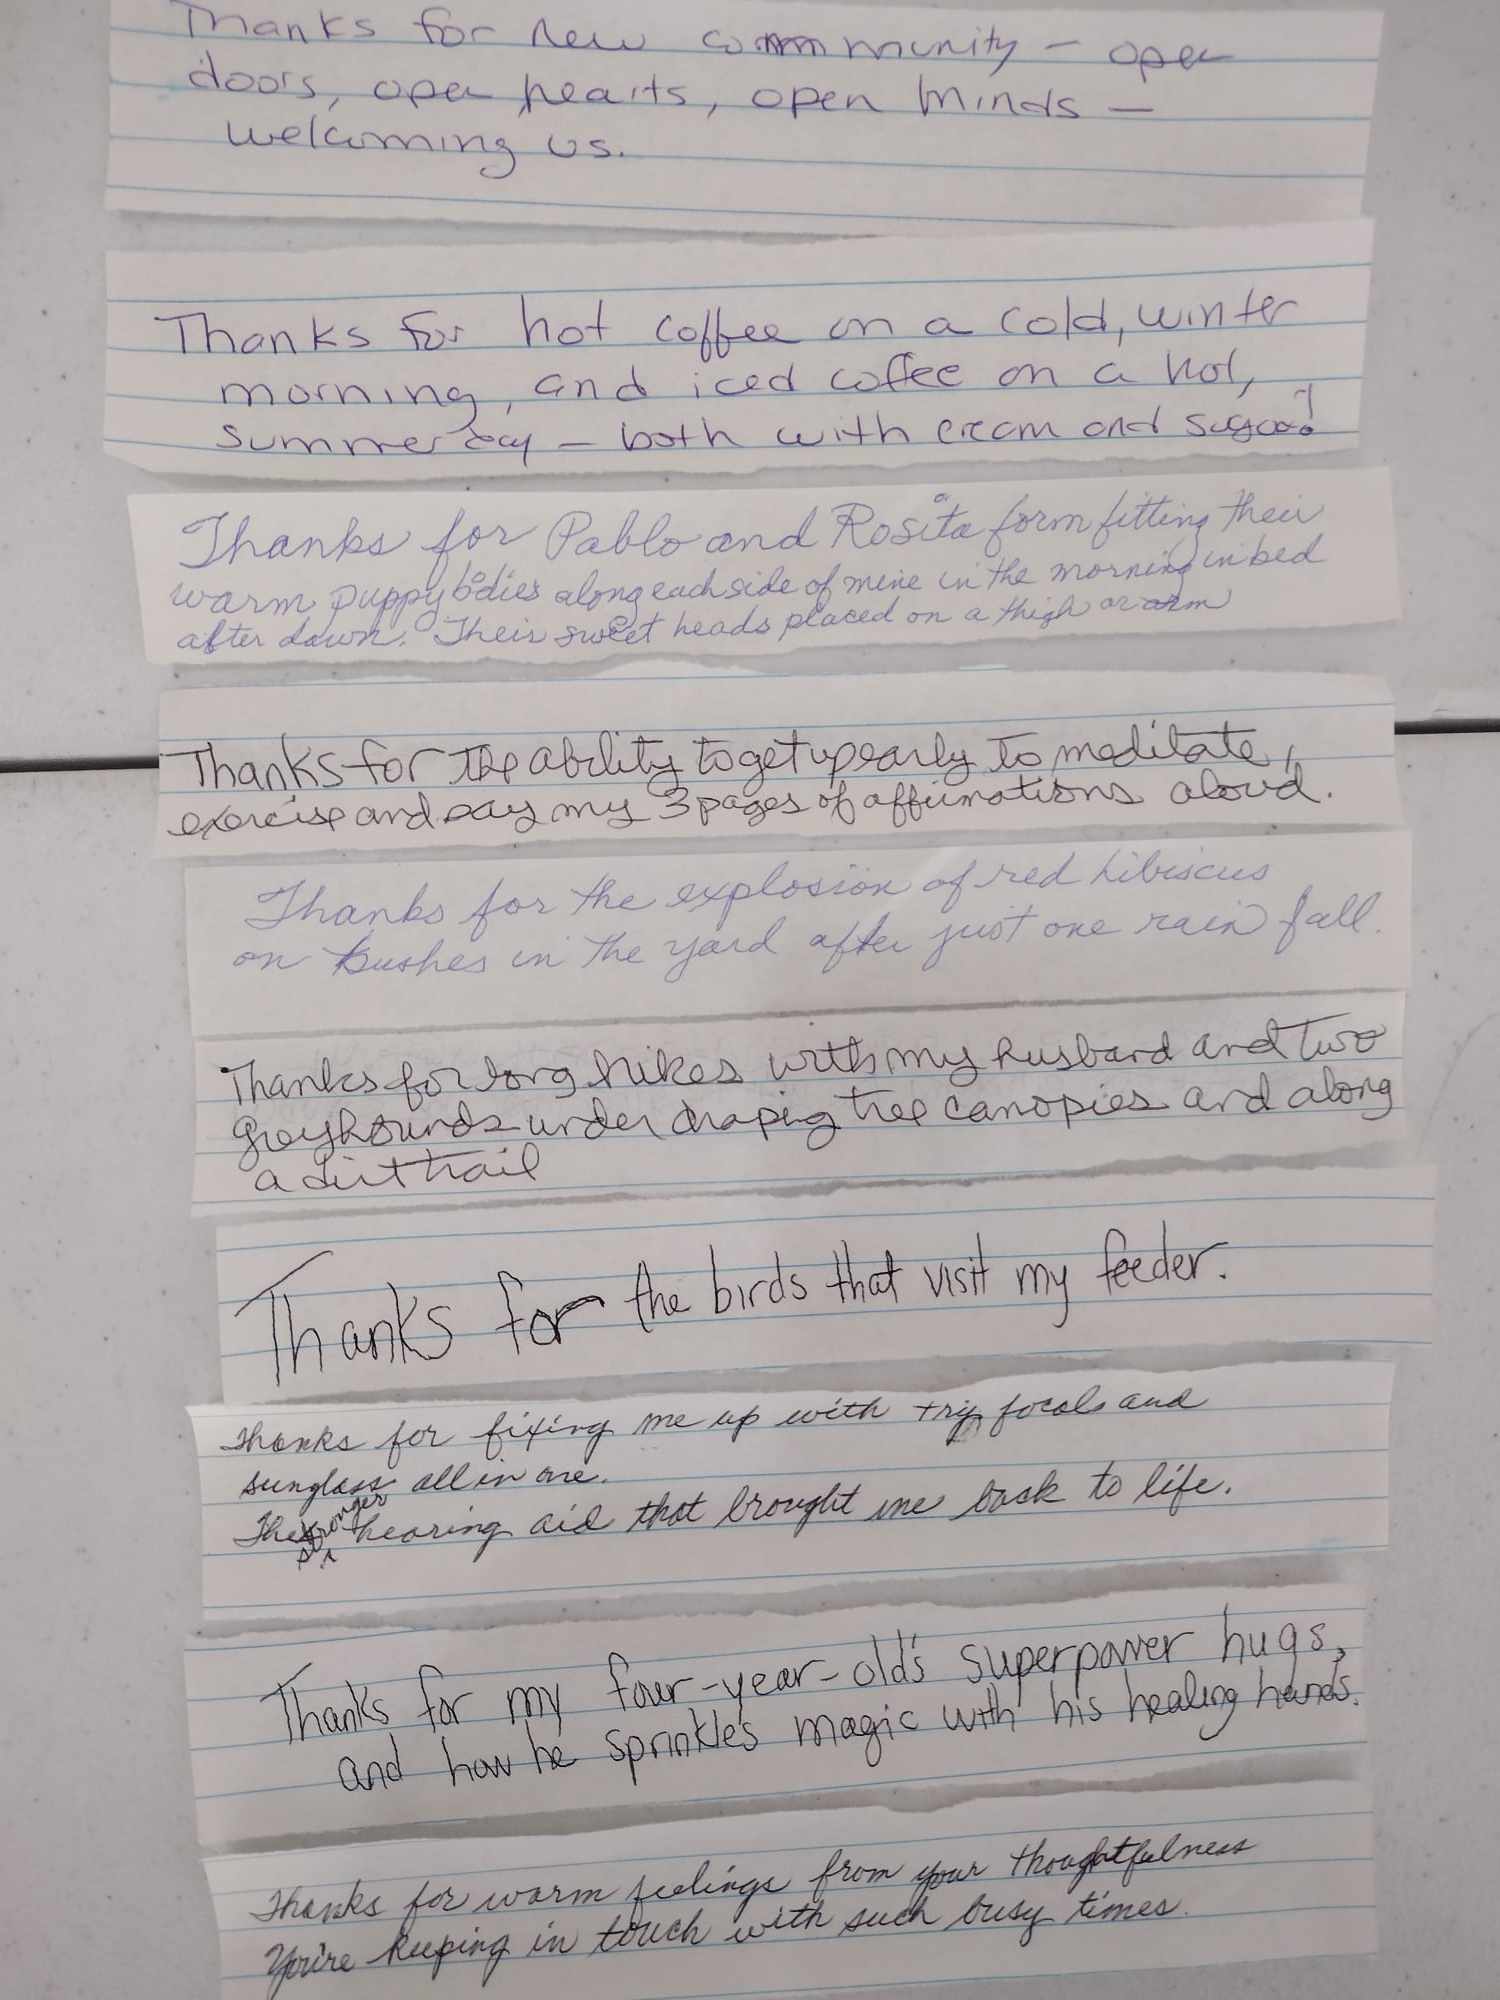 Thanks for new community – open
doors, open hearts, open minds –
welcoming us.
Thanks for hot coffee on a cold, winter
morning, and iced coffee on a hot,
summer day – both with cream and sugar!
Thanks for Pablo and Rosita form fitting their
warm puppy bodies along each side of mine in the morning in bed
after dawn. Their sweet heads placed on a thigh or arm
Thanks for the ability to get up early to meditate,
exercise and say my 3 pages of affirmations aloud.
Thanks for the explosion of red hibiscus
on bushes in the yard after just one rain fall.
Thanks for long hikes with my husband and two
greyhounds under draping tree canopies and along
a dirt trail
Thanks for the birds that visit my feeder.
Thanks for fixing me up with try focals and
sunglass all in one.
The stronger hearing aid that brought me back to life.
Thanks for my four-year-old's superpower hugs,
and how he sprinkles magic with his healing hands.
Thanks for warm feelings from your thoughtfulness
You're keeping in touch with such busy times.